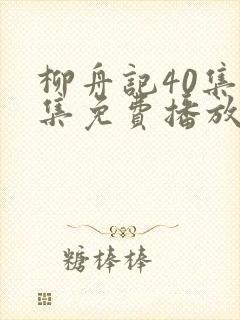 柳舟記40集
集免費播放
糖棒棒